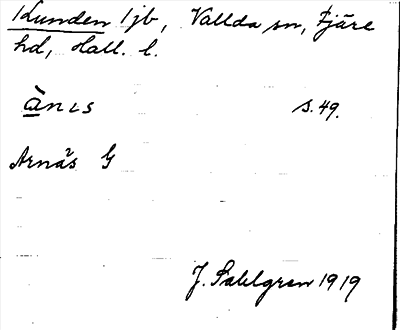 Kunden 1jb, Vallda sn, Fjäre
hd, Hall. l.
ànɛs s. 49.
Arnäs G
J. Sahlgren 1919